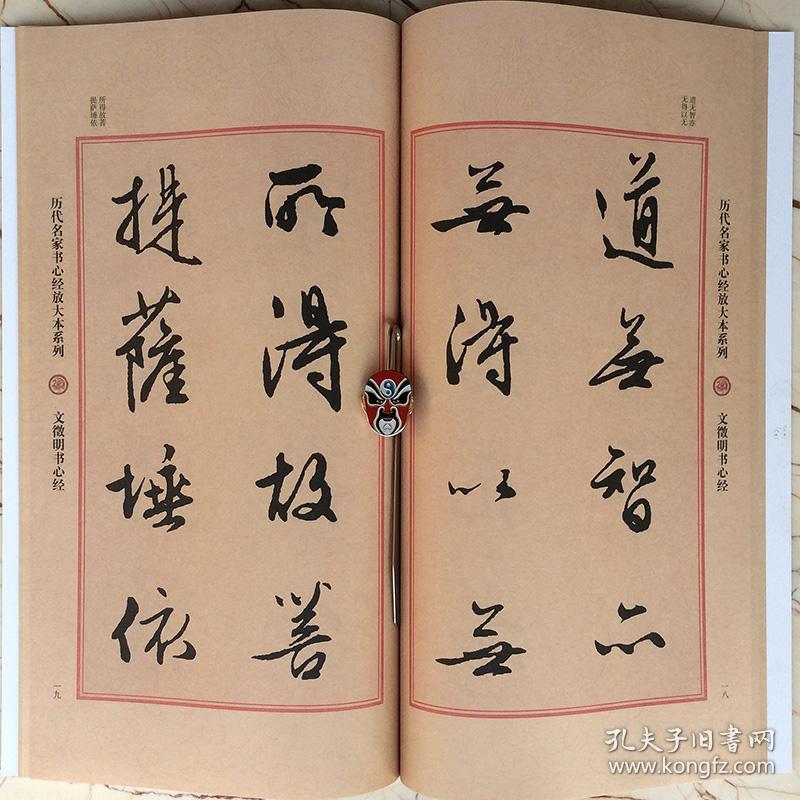 历代名家书心经放大本系列 文徵明书心经
一八
道无智亦
无得以无
道無智亦
無得以無
所得故菩
提薩埵依
所得故菩
提萨埵依
历代名家书心经放大本系列 文徵明书心经
一九
孔夫子旧书网
www.kongfz.com